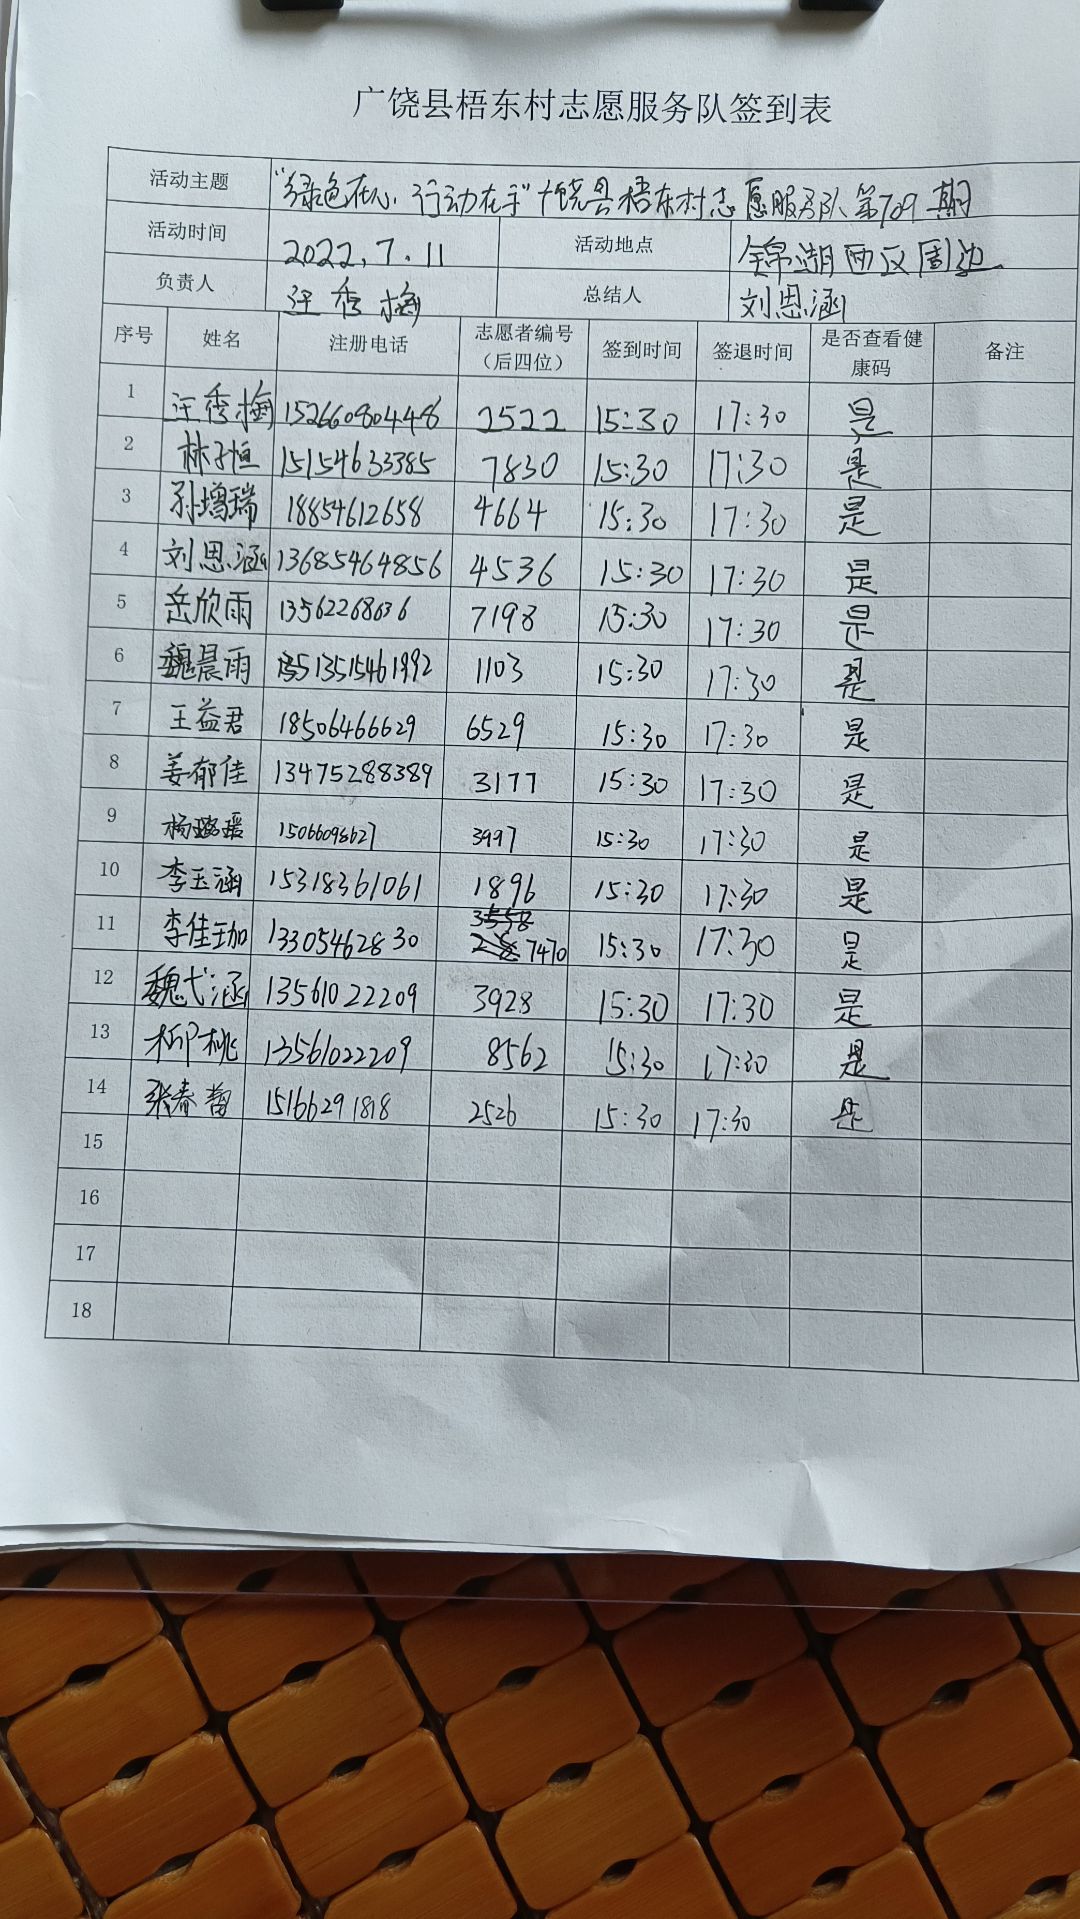 广饶县梧东村志愿服务队签到表
活动主题 "绿色在心,行动在手"广饶县梧东村志愿服务队第709期
活动时间 2022.7.11 活动地点 锦湖西区周边
负责人 汪秀梅 总结人 刘思涵
序号 姓名 注册电话 志愿者编号（后四位） 签到时间 签退时间 是否查看健康码 备注
1 汪秀梅 15266080448 2522 15:30 17:30 是
2 林子恒 15154633385 7830 15:30 17:30 是
3 孙增瑞 18854612658 4664 15:30 17:30 是
4 刘思涵 13685464856 4536 15:30 17:30 是
5 岳欣雨 13562268636 7198 15:30 17:30 是
6 魏晨雨 13515461992 1103 15:30 17:30 是
7 王益君 18506466629 6529 15:30 17:30 是
8 姜郁佳 13475288389 3177 15:30 17:30 是
9 杨璐瑶 15066098627 3997 15:30 17:30 是
10 李玉涵 15318361061 1896 15:30 17:30 是
11 李佳珈 13305462830 7470 15:30 17:30 是
12 魏弋涵 13561022209 3928 15:30 17:30 是
13 柳桃 13561022209 8562 15:30 17:30 是
14 张春 15166291818 2526 15:30 17:30 是
15
16
17
18